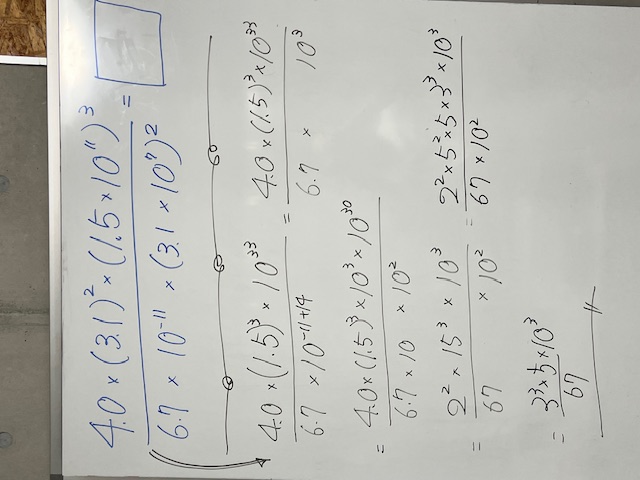 4.0 × (3.1)² × (1.5 × 10¹¹)³ / 6.7 × 10⁻¹¹ × (3.1 × 10⁷)² =
4.0 × (1.5)³ × 10³³ / 6.7 × 10⁻¹¹⁺¹⁴ = 4.0 × (1.5)³ × 10³³ / 6.7 × 10³
= 4.0 × (1.5)³ × 10³ × 10³⁰ / 6.7 × 10 × 10²
= 2² × 15³ × 10³ / 67 × 10² = 2² × 5² × 5 × 3³ × 10³ / 67 × 10²
= 3³ × 5 × 10³ / 67